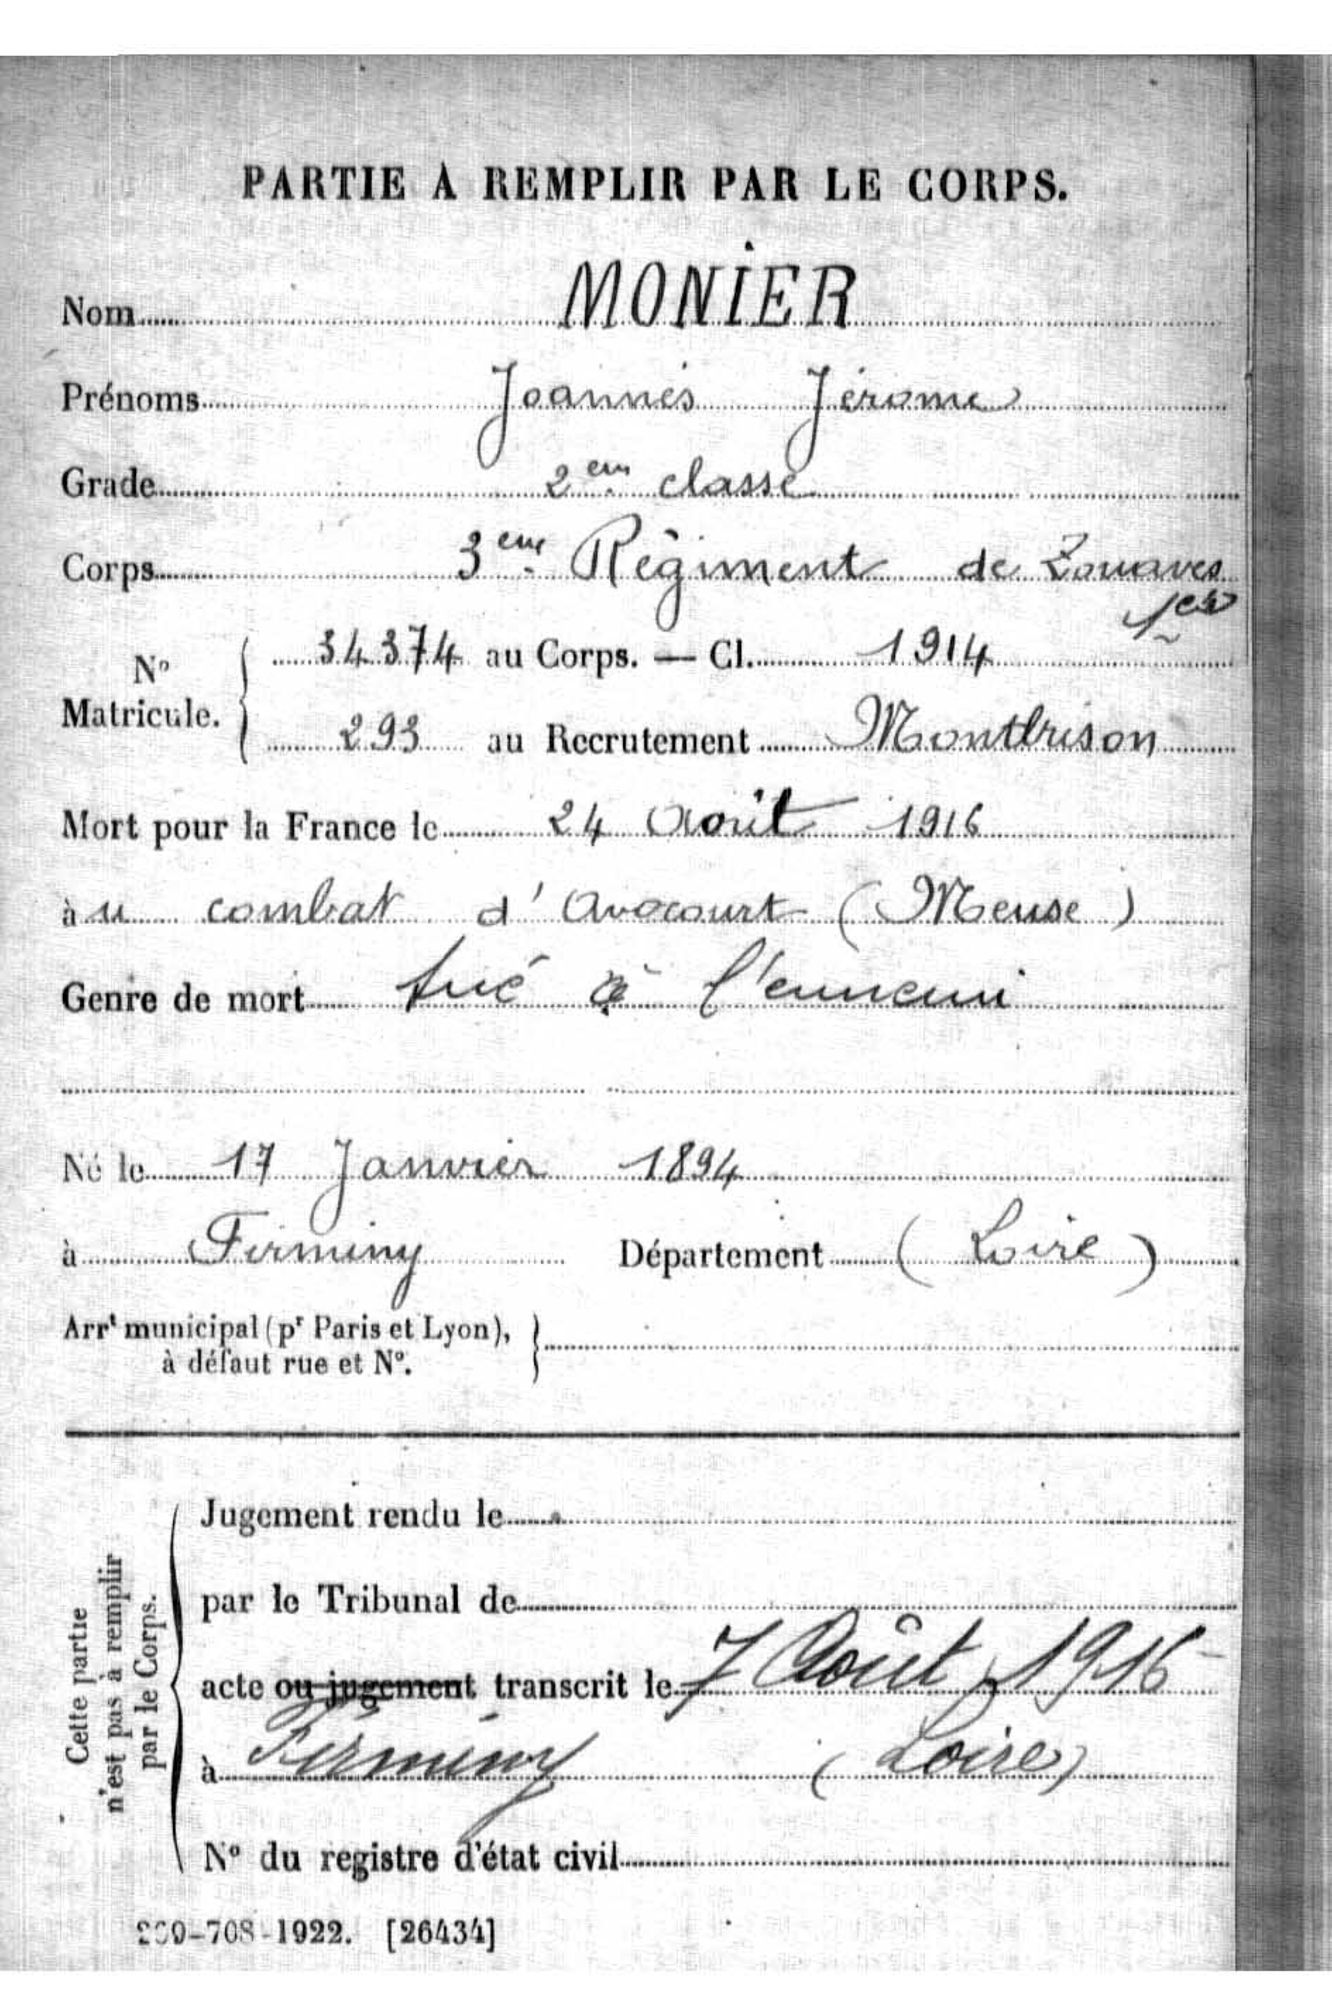 PARTIE A REMPLIR PAR LE CORPS.
Nom MONIER
Prénoms Joannès Jérome
Grade 2eme classe
Corps 3eme Régiment de Zouaves
N° Matricule. 34374 au Corps. — Cl. 1914
293 au Recrutement Montbrison
Mort pour la France le 24 Août 1916
à u combat d'Avocourt (Meuse)
Genre de mort tué à l'ennemi
Né le 17 Janvier 1894
à Firminy Département (Loire)
Arrt municipal (pr Paris et Lyon),
à défaut rue et N°.
Cette partie
n'est pas à remplir
par le Corps.
Jugement rendu le
par le Tribunal de
acte ou jugement transcrit le 7 Août 1916
à Firminy (Loire)
N° du registre d'état civil
-708-1922. [26434]